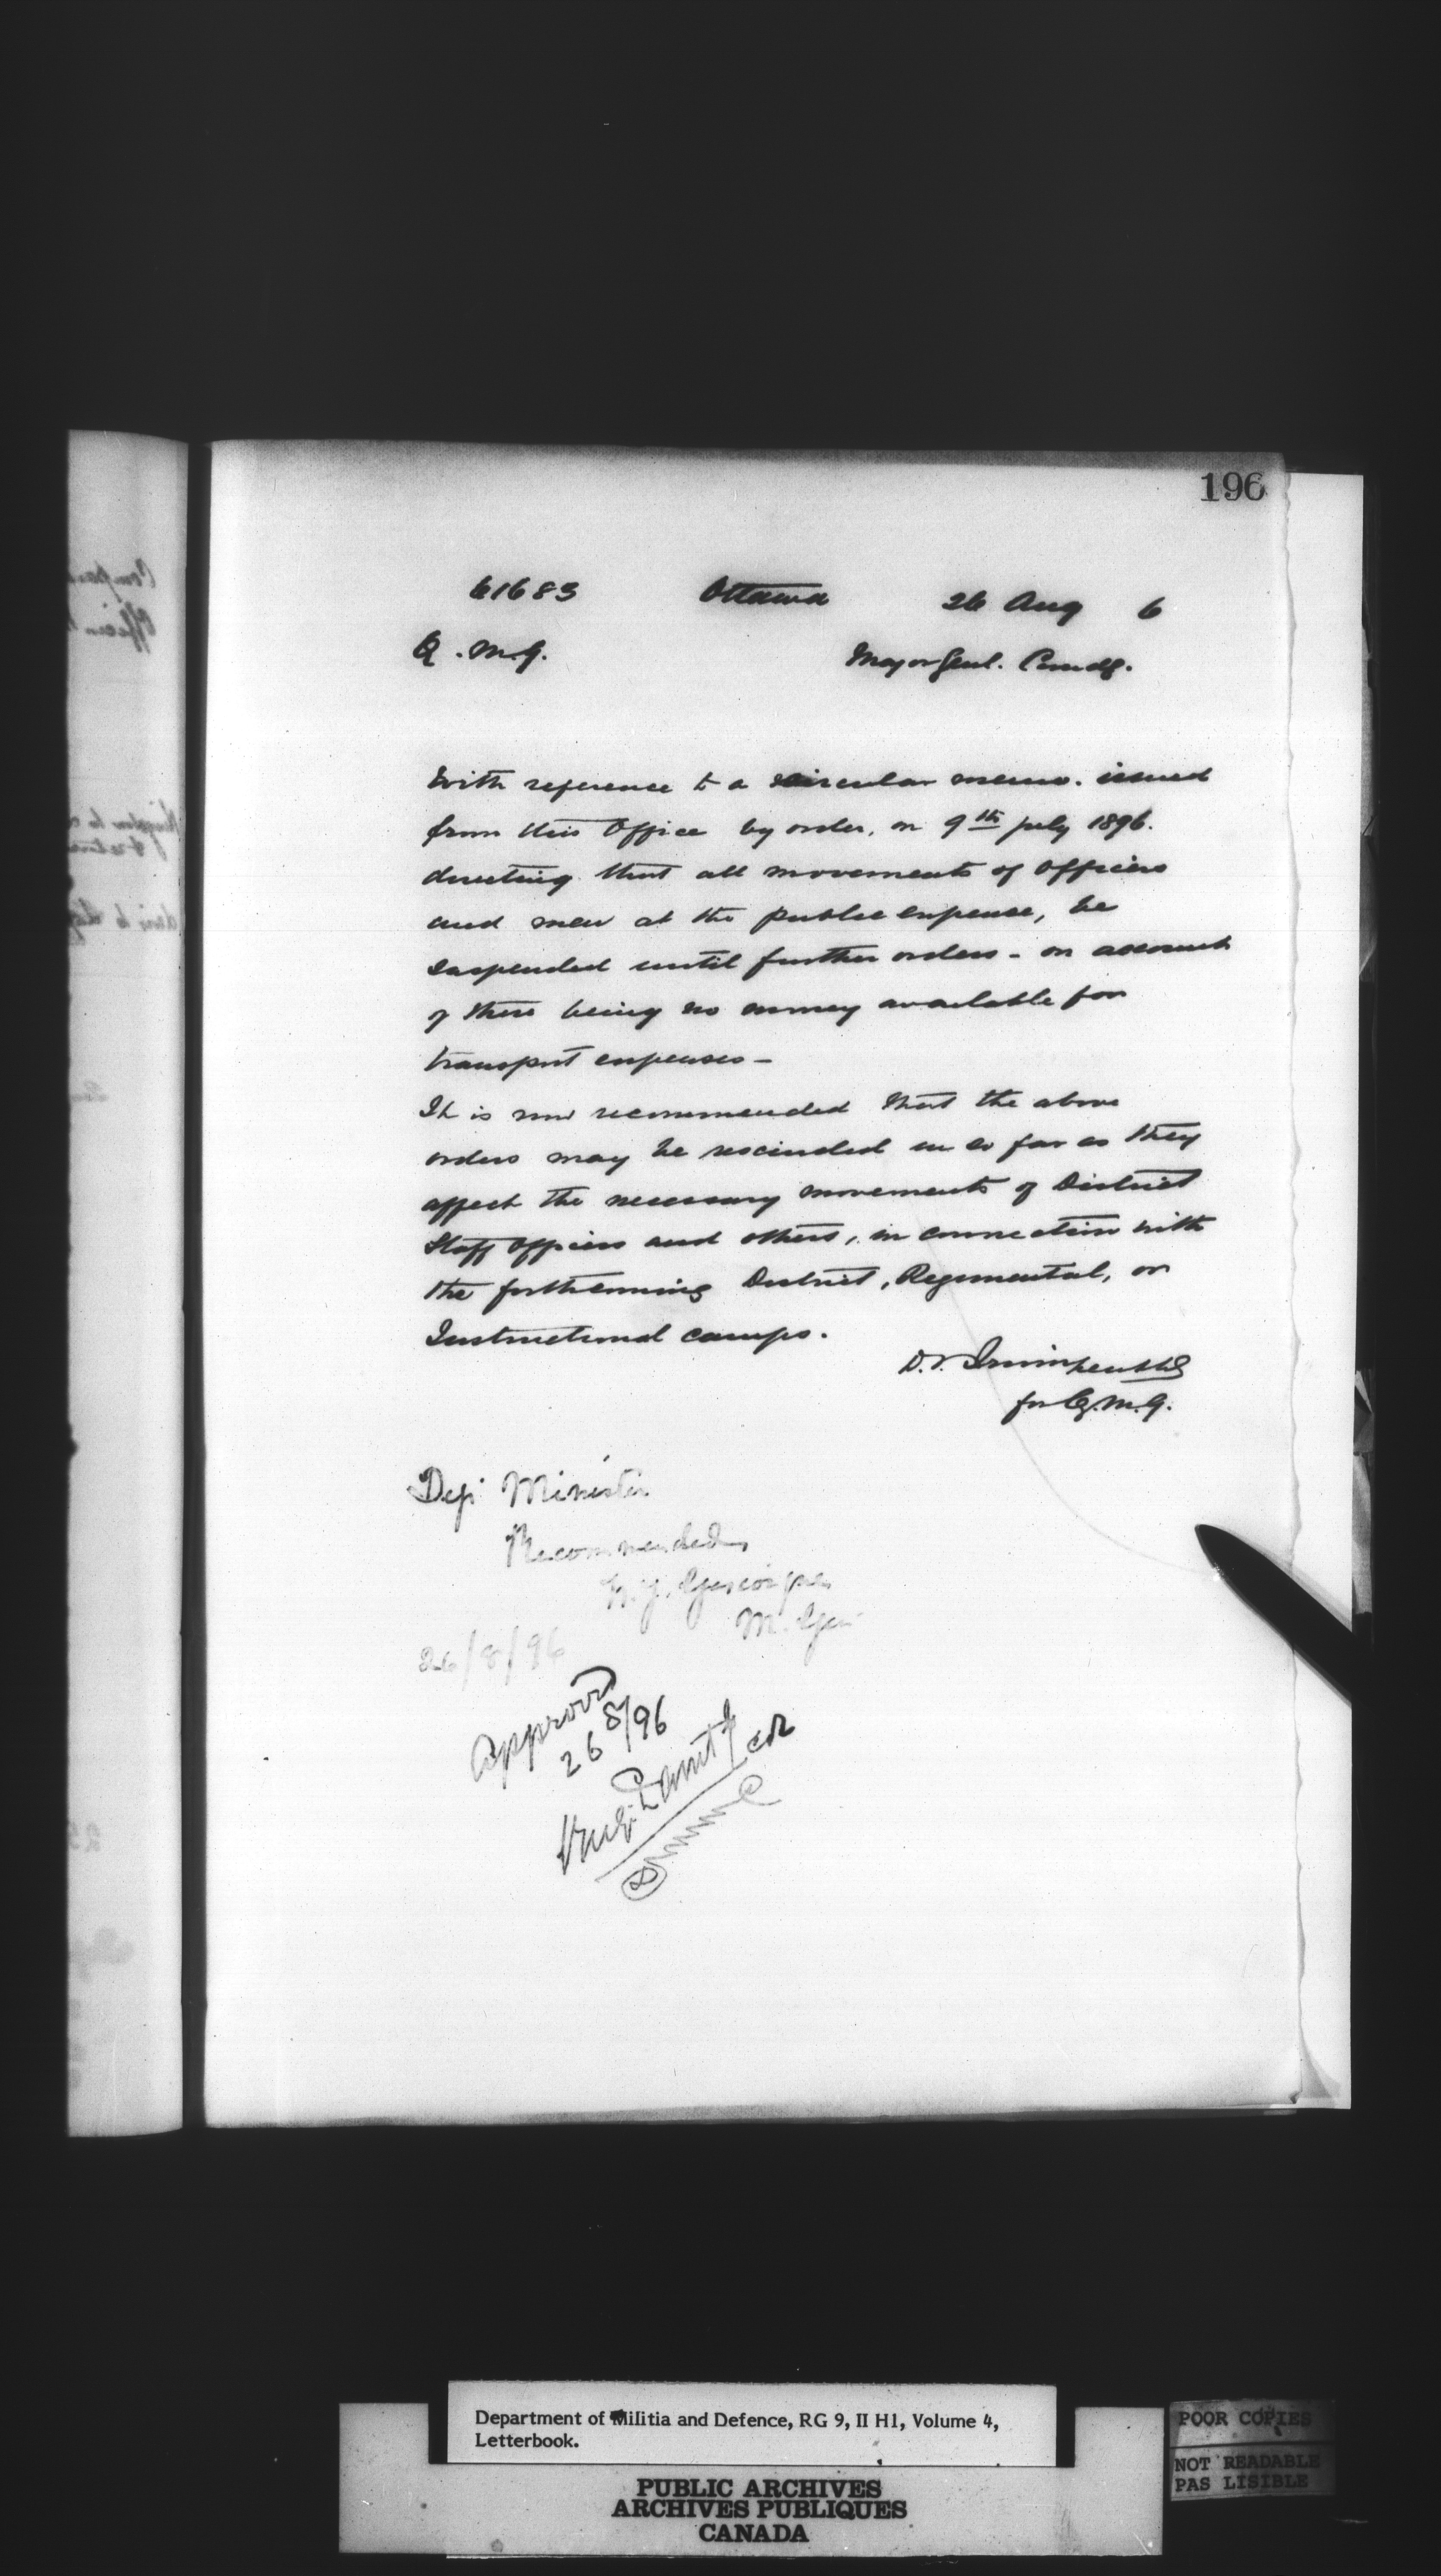 196
61683 Ottawa 26 Aug 6
Q.M.G. Major Genl. Comdg.
With reference to a circular memo. issued
from this Office by order, on 9th July 1896.
directing that all movements of Officers
and men at the public expense, be
suspended until further orders - on account
of there being no money available for
transport expenses -
It is now recommended that the above
orders may be rescinded in so far as they
affect the necessary movements of District
Staff Officers and others, in connection with
the forthcoming District, Regimental, or
Instructional camps.
D.T. Irwin
for Q.M.G.
Dep. Minister
Recommended
W.J. Gascoigne
M. Gen
26/8/96
Approved
26 8/96
Department of Militia and Defence, RG 9, II H1, Volume 4,
Letterbook.
PUBLIC ARCHIVES
ARCHIVES PUBLIQUES
CANADA
POOR COPIES
NOT READABLE
PAS LISIBLE